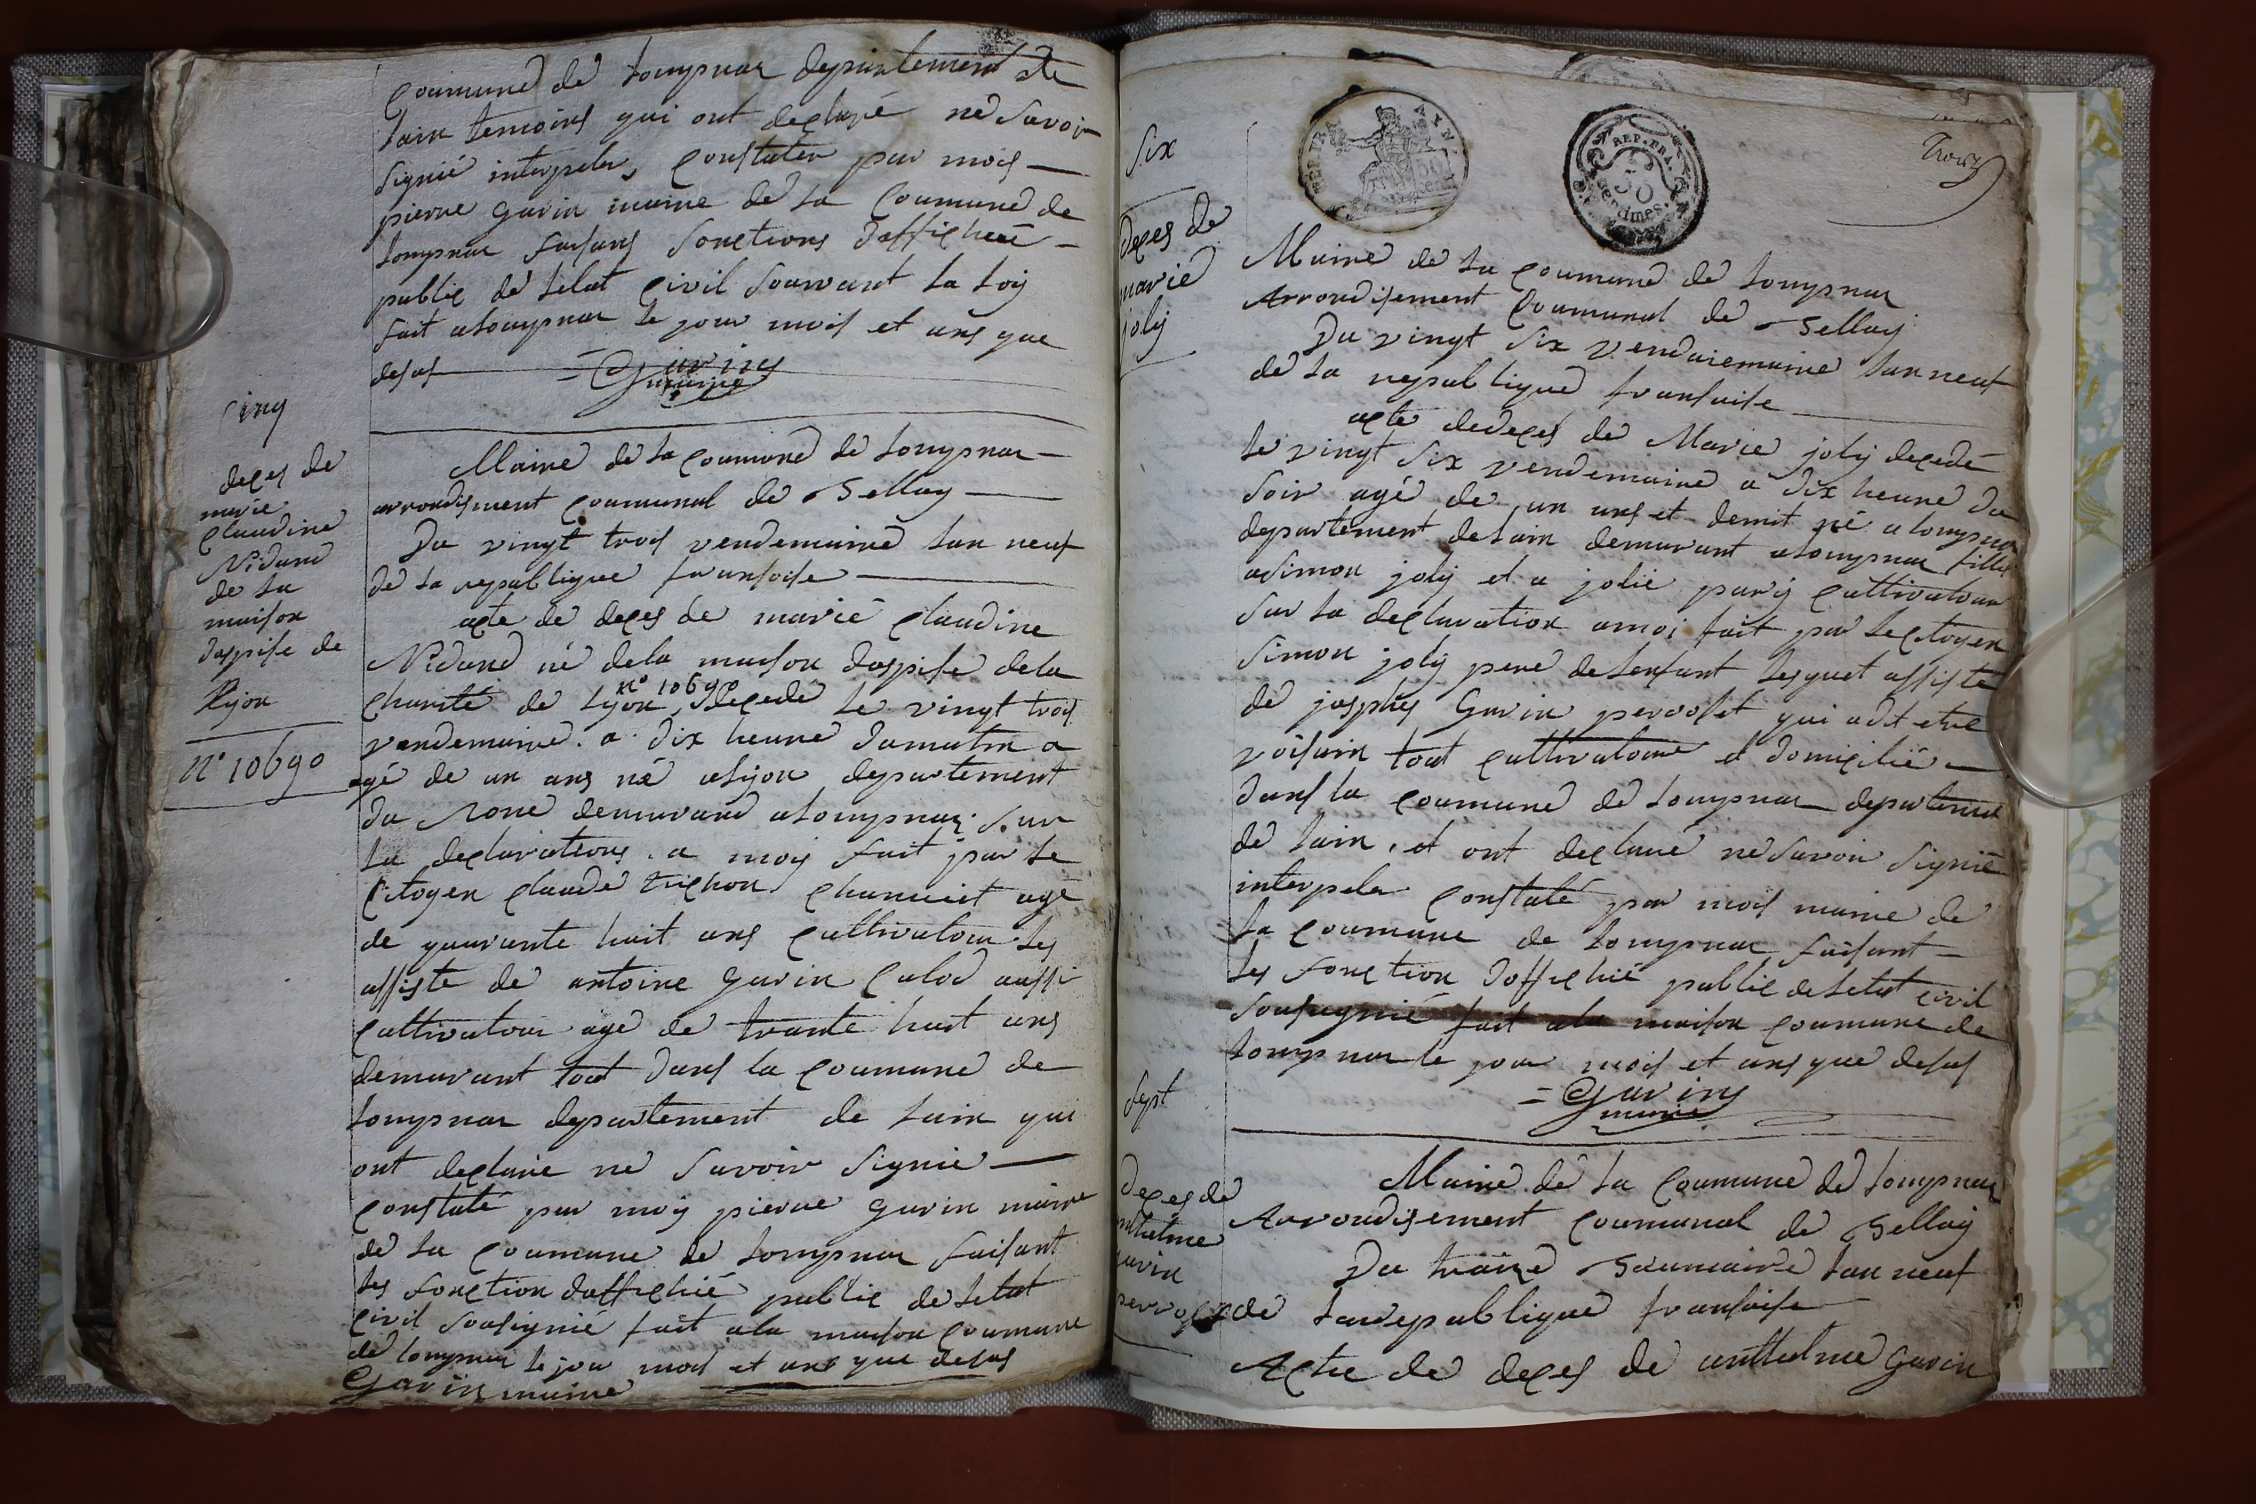 Coumune de Lompnas departement de
Lain temoins qui ont declaré ne Savoir
Signié interpeler, Constater par mois
pierre gavin maire de la Coumune de
Lompnas faisans fonctions dofficheié
public de letat Civil Souwant la loy
fait a Lompnas le jour mois et ans que
desus
= Gavins
maire
Cinq
deces de
marie
Claudine
Nidand
de la
maison
daspise de
Lijon
N° 10690
Maire de la Coumune de Lompnas
arrondisment Coumunal de Bellay
Du vingt trois vendemaire lan neuf
de la republique fransoise
acte de deces de marie Claudine
Nidand né de la maison daspise de la
Charité de Lyon, n° 10690 decede le vingt trois
vendemaire. a dix heure du matin a
agé de un ans né a Lijon departement
du Rone demurand a Lompnas. Sur
la declarations a moy fait par le
Citoyen Claude trichon agé
de quarante huit ans Cultivatour les
assiste de antoine gavin Calod aussi
Cultivatour agé de trante huit ans
demurant tout dans la Coumune de
Lompnas departement de Lain qui
ont declaré ne Savoir Signié
Constaté par moy pierre gavin maire
de la Coumune de Lompnas faisant
les fonction dofficheié public de letat
Civil Sousignié fait a la maison Coumune
de Lompnas le jour mois et ans que desus
Gavins maire
Trois
REP. FRA.
50
centimes.
Six
deces de
marie
joly
Maire de la Coumune de Lompnas
Arrondisement Coumunal de Bellay
Du vingt Six vendaiemaire lan neuf
de la republique fransaise
acte dedeces de Marie joly decedé
le vingt Six vendemaire a dix heure du
Soir agé de un ans et demit né a Lompnas
departement de Lain demurant a Lompnas fille
a Simon joly et a jolie pary Cultivatour
Sur la declaration a moi fait par le Citoyen
Simon joly pere de lenfant lesquel assisté
de josphes Gavin perosset qui a dit etre
voisain tout Cultivatour et domicilié
dans la Coumune de Lompnas departement
de Lain, et ont declaré ne Savoir Signié
interpeler Constaté par mois maire de
la Coumune de Lompnas faisant
les fonction dofficheié public de letat Civil
Sousignié fait a la maison Coumune de
Lompnas le jour mois et ans que desus
= Gavins
maire
Sept
deces de
anthelme
gavin
Maire de la Coumune de Lompnas
Arrondisement Coumunal de Bellay
Du traize Baumaire lan neuf
de la republique fransaise
Acte de deces de anthelme gavin